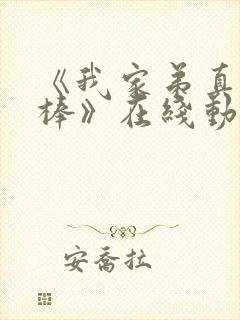 《我家弟真
棒》在线动
安乔拉